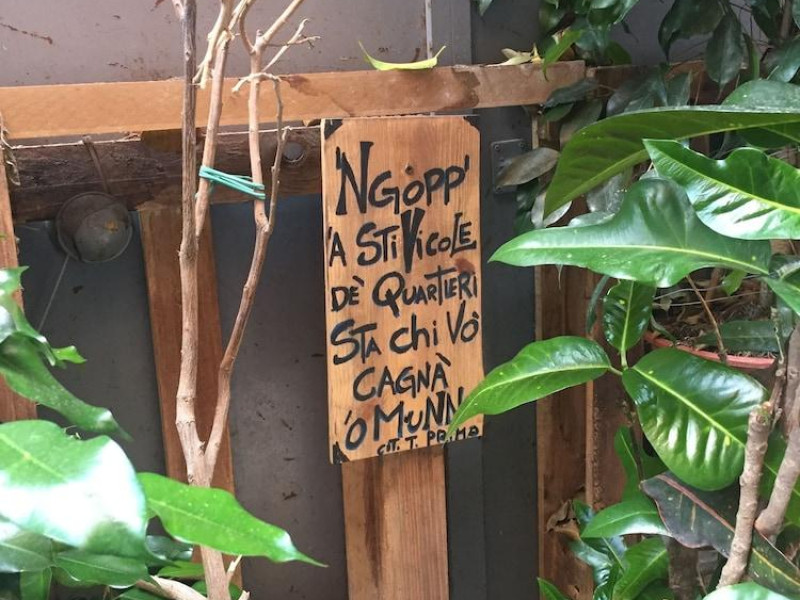 'NGOPP'
'A STI VICOLE
DÈ QUARTIERI
STA CHI VÒ
CAGNÀ
'O MUNN
CIT. T.